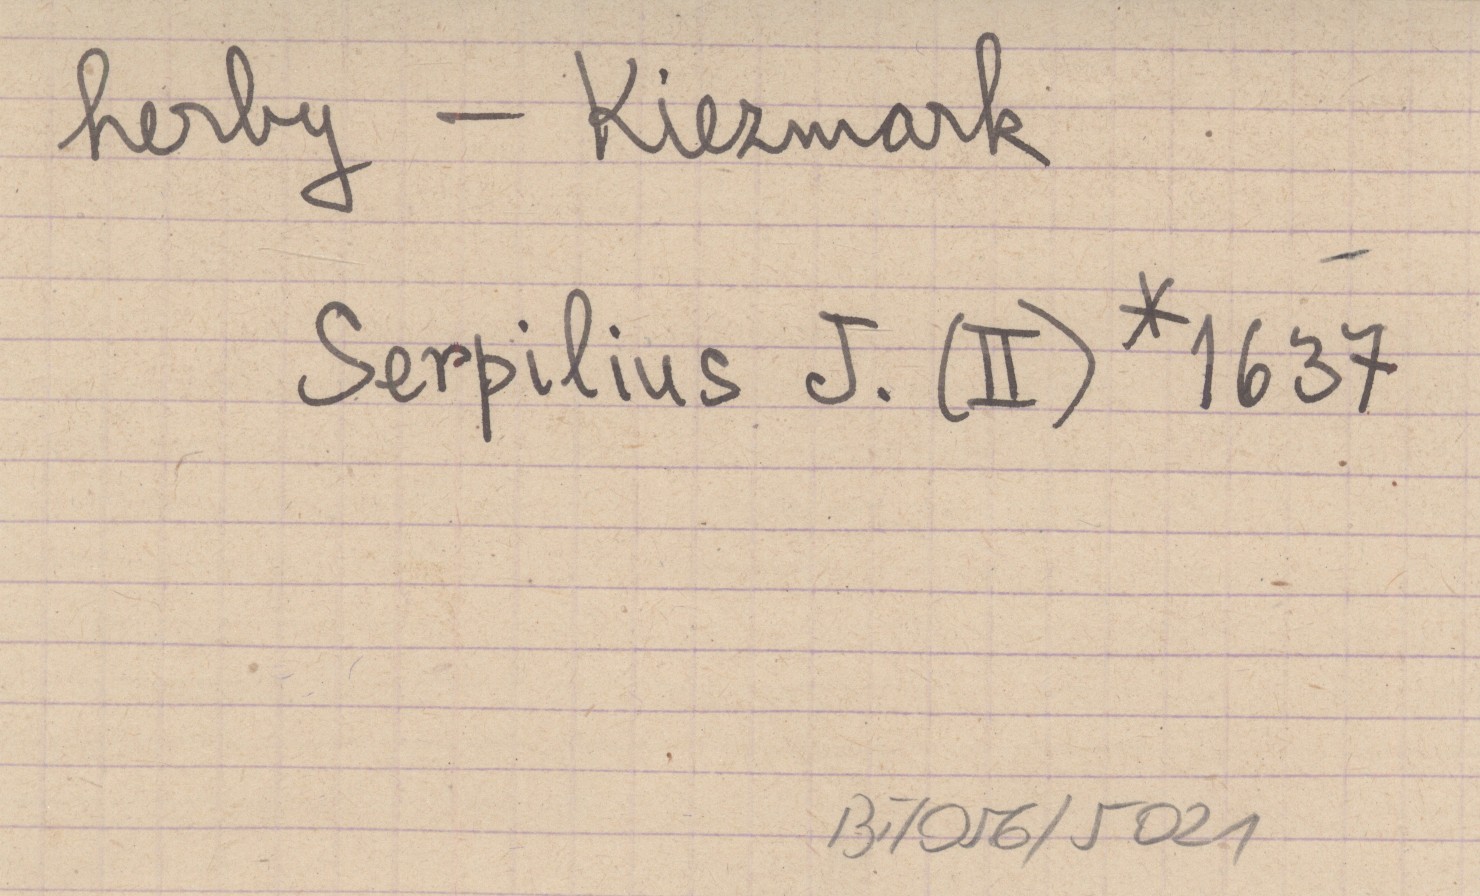 herby - Kiezmark
Serpilius J. (II) *1637
Bi/056/5021